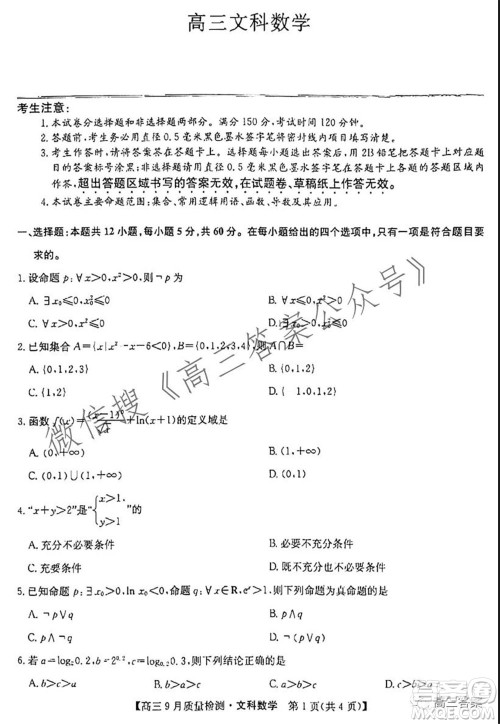 高三文科数学
考生注意:
1. 本试卷分选择题和非选择题两部分。满分 150 分,考试时间 120 分钟。
2. 答题前,考生务必用直径 0.5 毫米黑色墨水签字笔将密封线内项目填写清楚。
3. 考生作答时,请将答案答在答题卡上。选择题每小题选出答案后,用 2B 铅笔把答题卡上对应
题目的答案标号涂黑;非选择题请用直径 0.5 毫米黑色墨水签字笔在答题卡上各题的答题区域内
作答,超出答题区域书写的答案无效,在试题卷、草稿纸上作答无效。
4. 本试卷主要命题范围:集合,常用逻辑用语,函数、导数及其应用。
一、选择题:本题共 12 小题,每小题 5 分,共 60 分。在每小题给出的四个选项中,只有一项是符合题目
要求的。
1. 设命题 p:∀x>0,x²>0,则¬p为
A. ∃x₀≤0,x₀²≤0
C. ∀x>0,x²≤0
2. 已知集合 A={x|x²-x-6<0},B={0,1,2,3,4},则A∩B=
A. {0,1,2,3}
B. {0,1,2}
C. {1,2}
D. { 1,0,1,2}
3. 函数 +ln(x+1)的定义域是
A. (0,+∞)
C. (0,1)∪(1,+∞)
D. (0,1)
4. “x+y>2”是“{x>1, y>1”的
A. 充分不必要条件
B. 必要不充分条件
C. 充要条件
D. 既不充分也不必要条件
5. 已知命题 p:∃x₀>0,ln x₀<0,命题 q:∀x∈R,eˣ>1,则下列命题为真命题的是
A. ¬p∨q
B. p∧q
C. p∧¬q
D. ¬(p∨q)
6. 若 a=log₂0.2,b=2^0.2,c=log₀.₂0.3,则下列结论正确的是
A. b>c>a
B. b>a>c
C. a>b>c
D. c>b>a
高三 9 月质量检测·文科数学 第 1 页(共 4 页)
微信搜《高三答案公众号》
高三答案